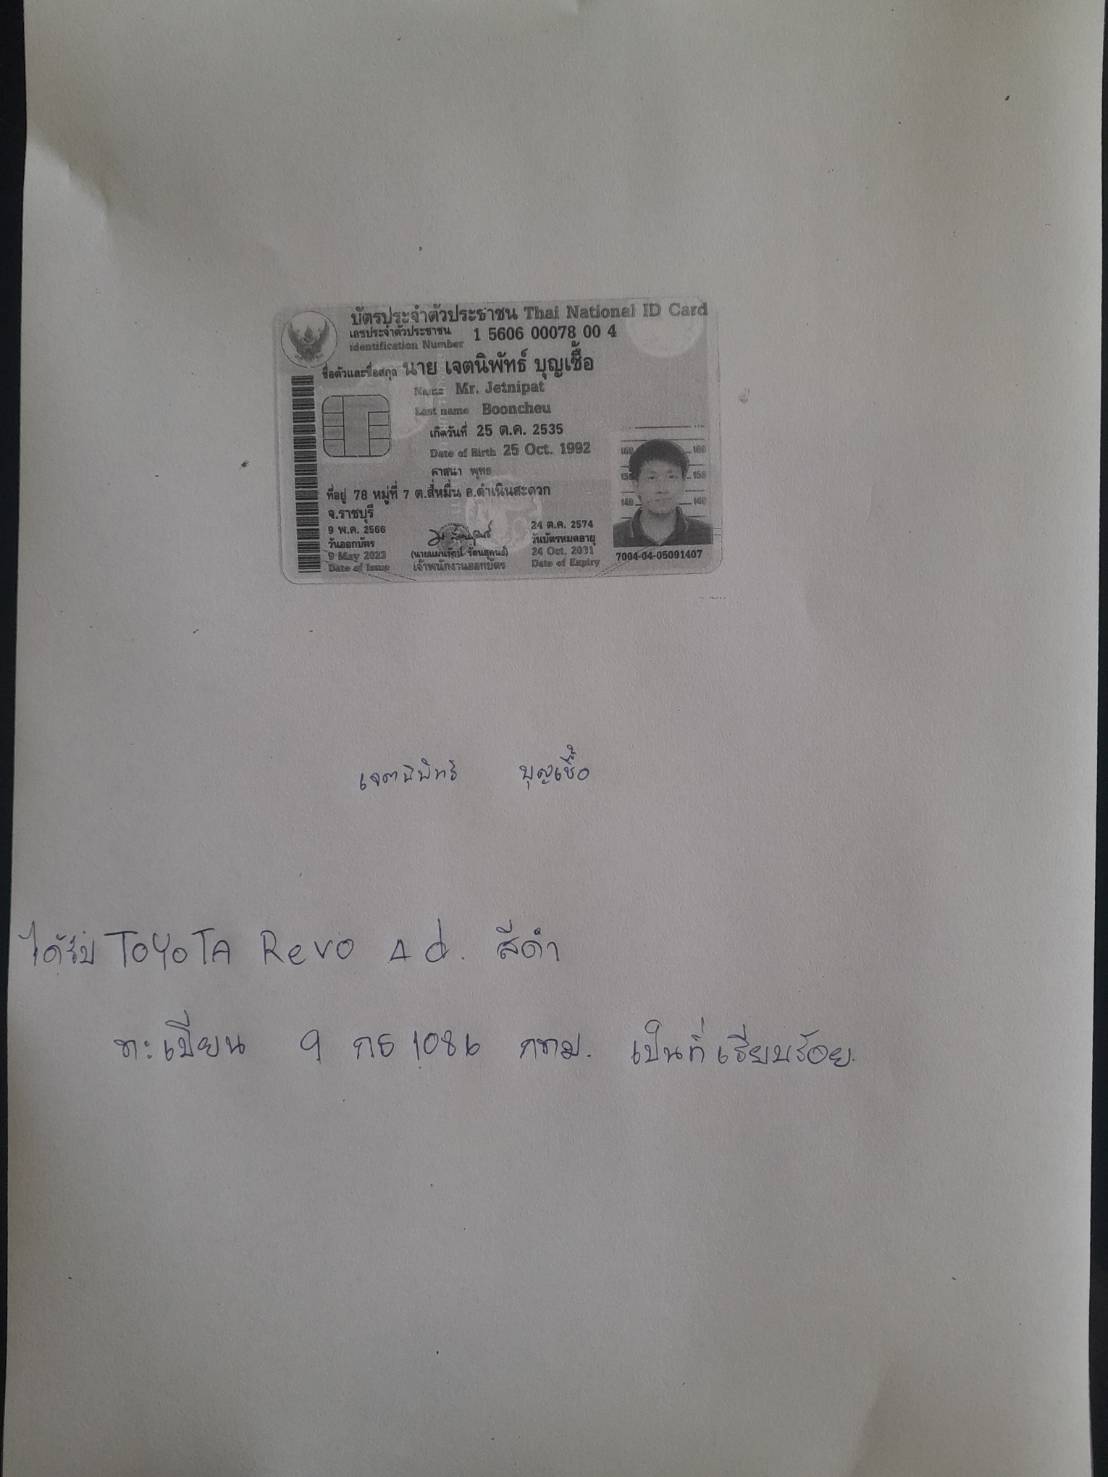 บัตรประจำตัวประชาชน Thai National ID Card
เลขประจำตัวประชาชน 1 5606 00078 00 4
Identification Number
ชื่อตัวและชื่อสกุล นาย เจตนิพัทธ์ บุญเชื้อ
Name Mr. Jetnipat
Last name Booncheu
เกิดวันที่ 25 ต.ค. 2535
Date of Birth 25 Oct. 1992
ศาสนา พุทธ
ที่อยู่ 78 หมู่ที่ 7 ต.สี่หมื่น อ.ดำเนินสะดวก
จ.ราชบุรี
9 พ.ค. 2566
วันออกบัตร
9 May 2023
Date of Issue
เจ้าพนักงานออกบัตร
24 ต.ค. 2574
วันบัตรหมดอายุ
24 Oct. 2031
Date of Expiry
160 160
150 150
140 140
7004-04-05091407
เจตนิพัทธ์ บุญเชื้อ
ได้รับ TOYOTA Revo 4 d. สีดำ
ทะเบียน 9 กธ 1086 กทม. เป็นที่เรียบร้อย